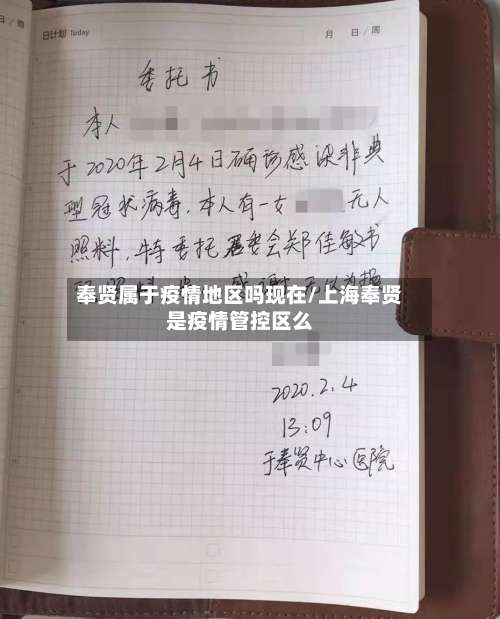 日/周
日计划 Today
月 日/周
委托书
本人
于2020年2月4日确诊感染非典
型冠状病毒,本人有一女 无人
照料,特委托居委会郑佳敏书
奉贤属于疫情地区吗现在/上海奉贤
是疫情管控区么
2020.2.4
13:09
于奉贤中心医院